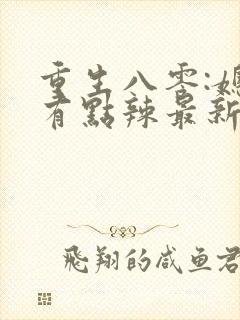 重生八零:媳
有點辣最新
飛翔的咸鱼君